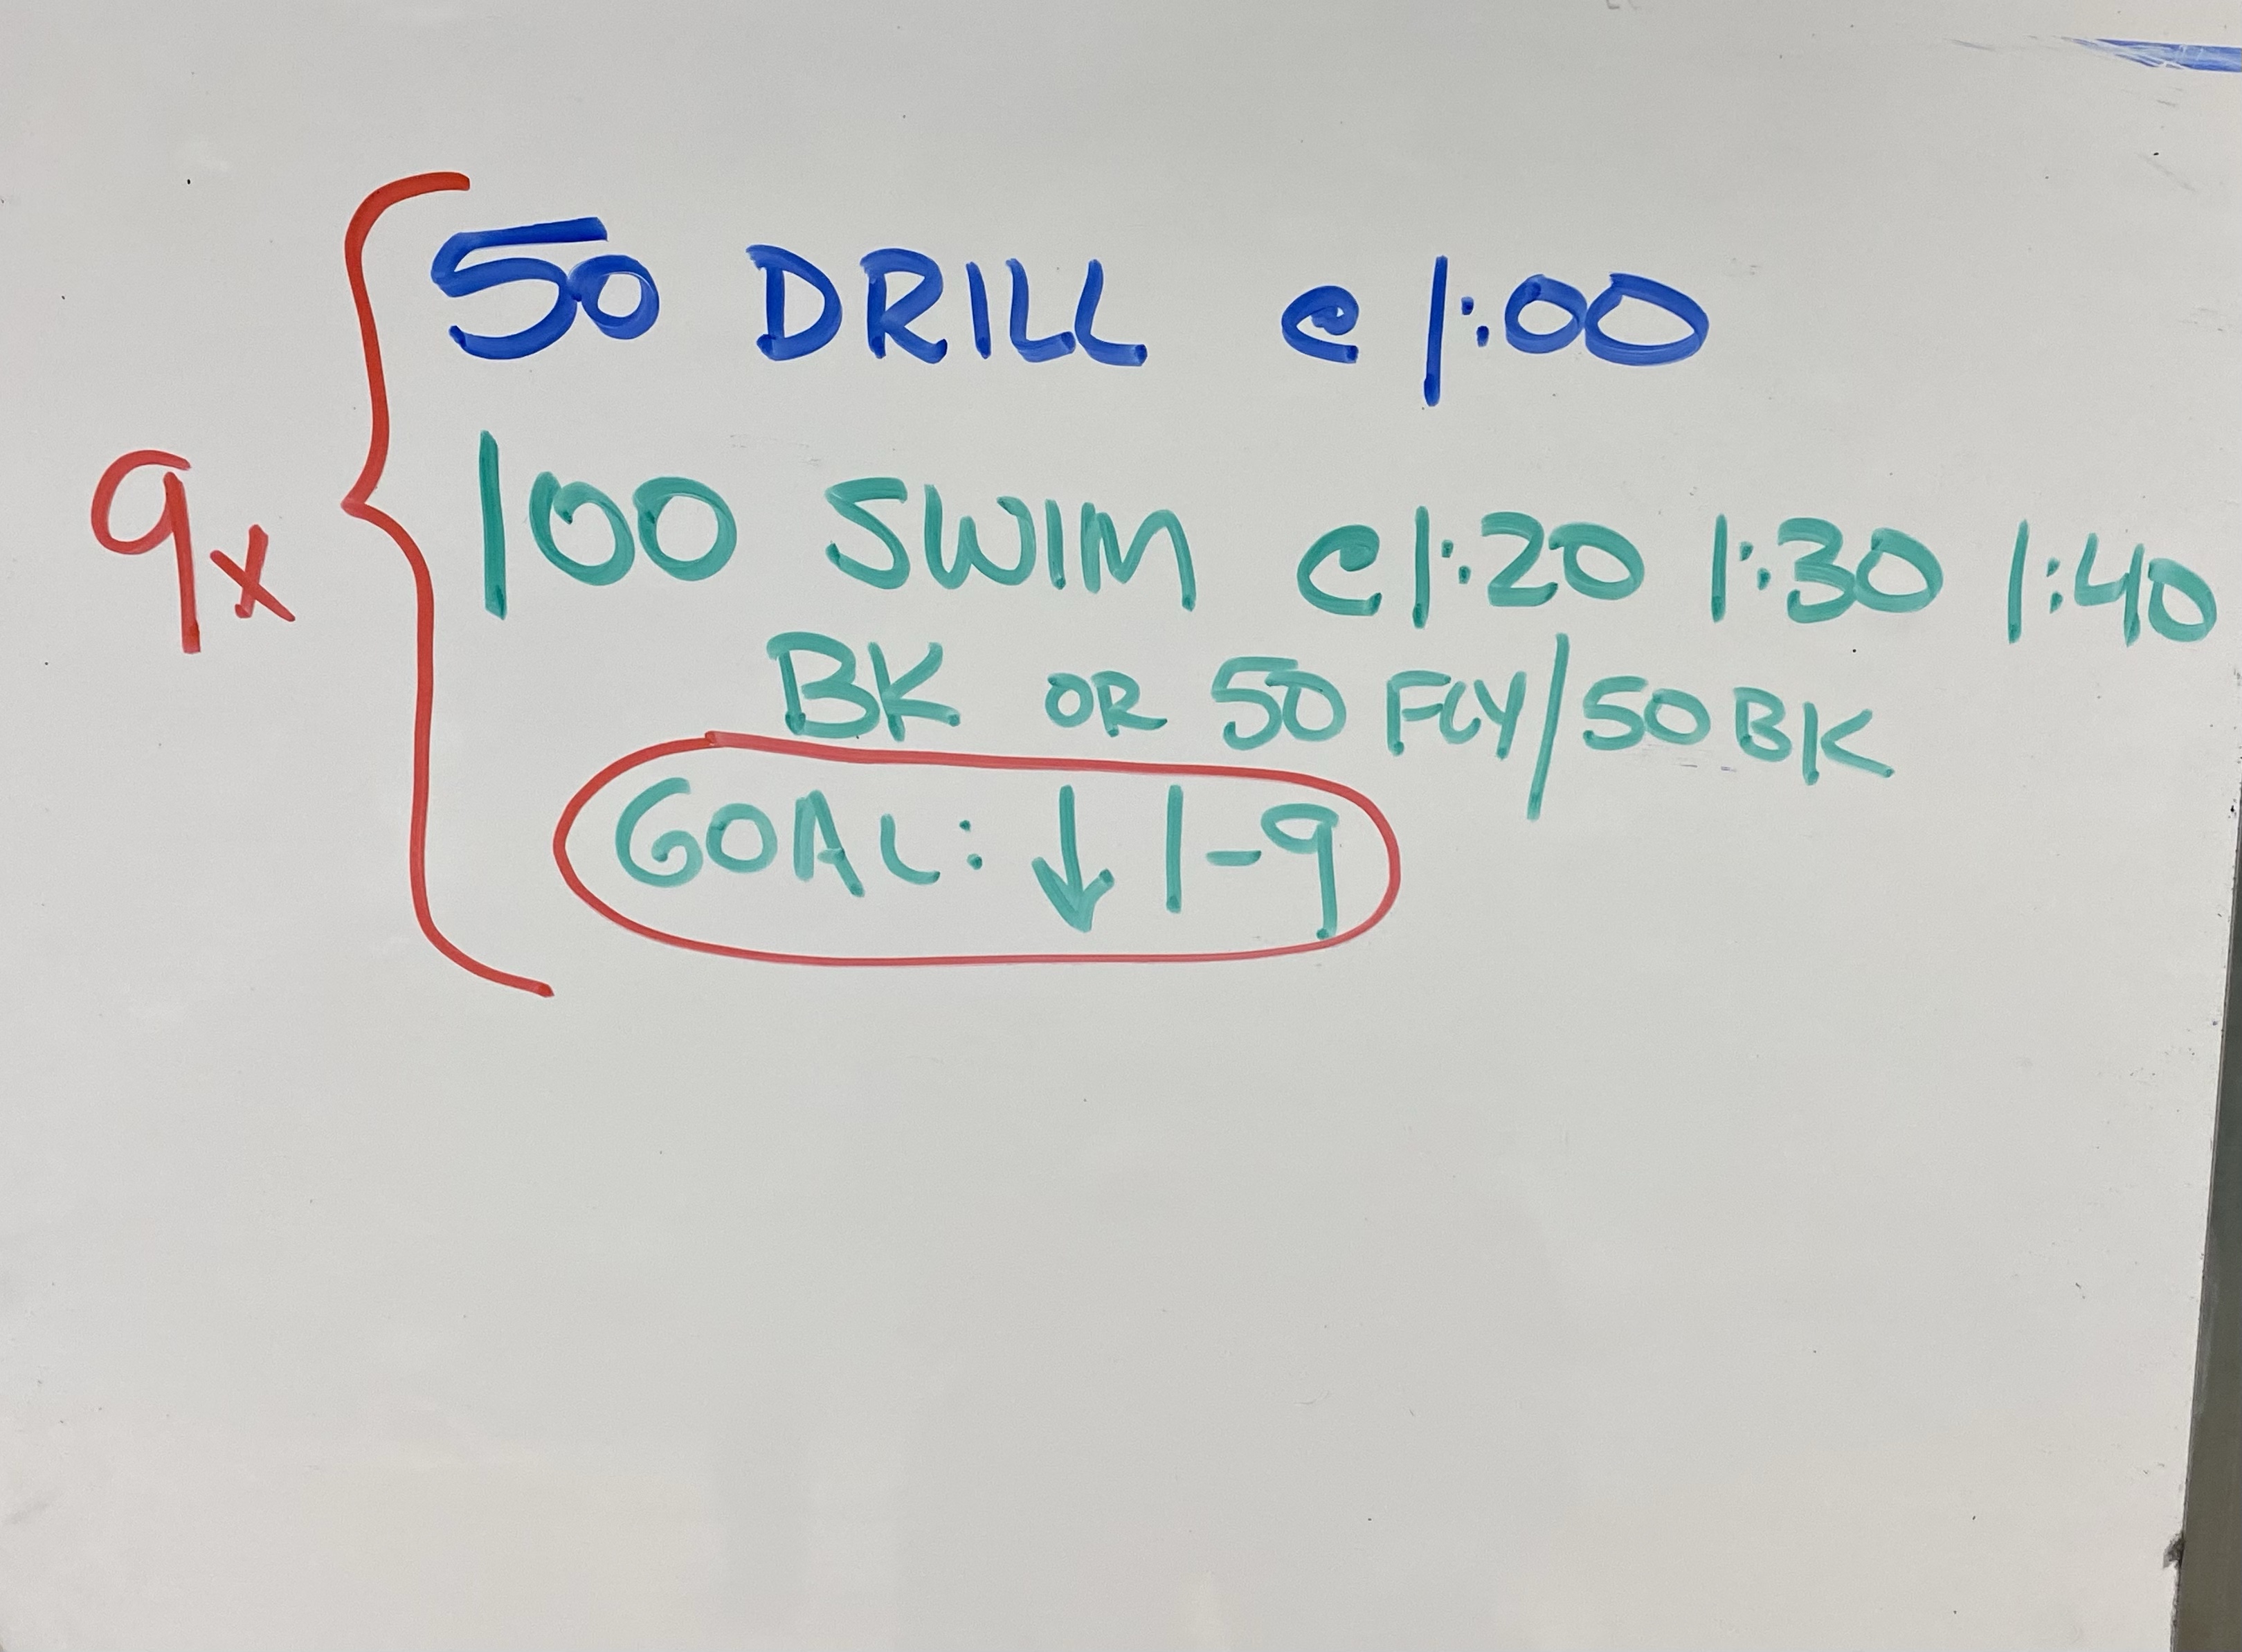 50 DRILL @ 1:00
9x
100 SWIM @ 1:20 1:30 1:40
BK OR 50 FLY/50 BK
GOAL: ↓ 1-9